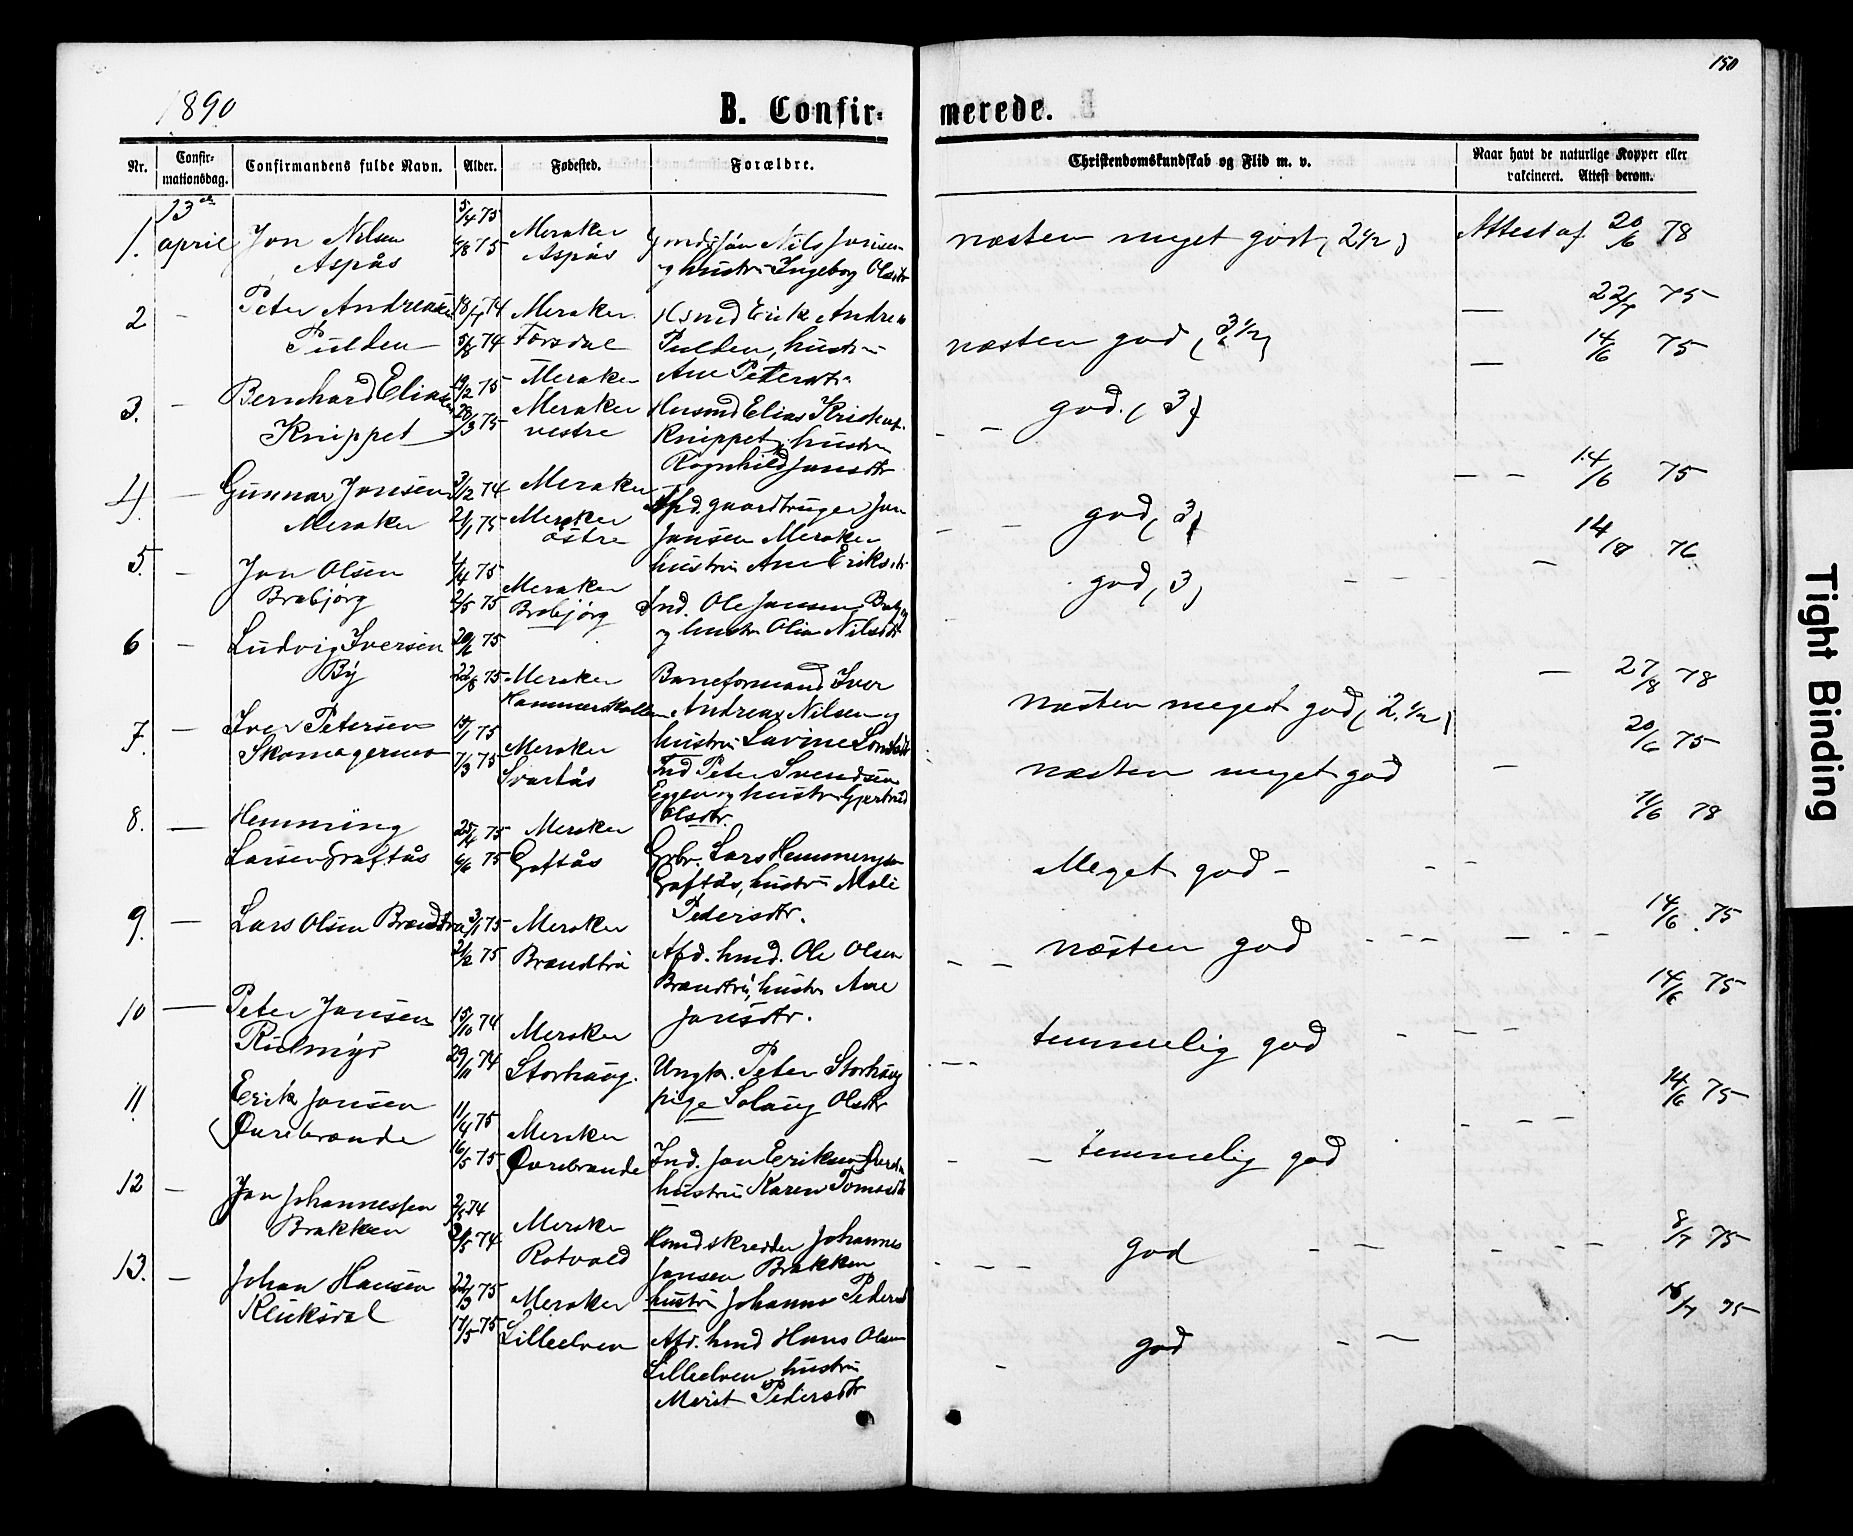 150
1890
B. Confir- merede.
Nr. Confir- mationsdag. Confirmandens fulde Navn. Alder. Fødested. Forældre. Christendomskundskab og Flid m. v. Naar havt de naturlige Kopper eller vakcineret. Attest derom.
13de
1. april Jon Nilsen 5/4 75 Meraker Nils Jonsen næsten meget god (2 1/2) Attest af 20/6 78
Aspås 6/8 75 Aspås og hustru Ingeborg Olsdtr
2 - Peter Andreas 74 Meraker Erik Andreas — 22/7 75
Fulden 5/8 74 Forsdal Fulden, hustru næsten god (3 1/2)
Ane Petersdtr — 14/6 75
3. - Bernhard Elias 75 Meraker
Knippet 28/3 75 Meraker Husmd Elias Kristens. god. (3)
vestre Knippet, hustru
Ragnhild Jonsdtr
4) — Gunnar Jonsen 3/12 74 Meraker Afd. gaardbruger Jon god (3) — — 14/6 75
Meraker 2/1 75 Meraker Jonsen Meraker
östre hustru Ane Eriksdtr
5. - Jon Olsen 1/4 75 Meraker god (3) — 14/ 76
Brebjörg 2/5 75 Brebjörg Ind. Ole Jonsen
og hustru Olia Nilsdtr
6 — Ludvig Iversen 75
By 22/8 75 Meraker Baneformand Iver næsten meget god (2 1/2) — 27/8 78
Hammerskallen Andreas Nilsen og
hustru Lavine
7. — Iver Petersen 75 Meraker Ind Peter Svendsen næsten meget god — 20/6 75
Skomagermo 7/3 75 Svartås Eggen og hustru Gjertrud
Olsdtr.
8. — Hemming 75 Meraker Gbr. Lars Hemmingsen Meget god - 11/6 78
Larsen Graftås 6/6 75 Gaftås Graftås, hustru Mali
Pedersdtr.
9. — Lars Olsen Brændtrø 3/1 75 Meraker Afd. hmd. Ole Olsen næsten god 14/6 75
2/2 75 Brændtrø Brændtrø, hustru Ane
Jonsdtr.
14/6 75
10 — Peter Jonsen 15/10 74 Meraker temmelig god
29/11 74 Storhaug. Ungk. Peter Storhaug
pige Solaug Olsdtr
11 Erik Jonsen 11/4 75 Meraker temmelig god 14/6 75
Øvrebrænde 16/5 75 Øvrebrænde Ind. Jon Eriksen
hustru Karen Tomasdtr
12 — Jon Johannessen 74 Meraker god 8/7 75
Brækken 74 Rotvold Hsmd skredder Johannes
Jonsen Brækken
hustru Johanna Pedersd
13. — Johan Hansen 22/3 75 Meraker god 75
Kluksdal 17/5 75 Lilleelven Afd. hmd Hans Olsen
Lilleelven, hustru
Merit Pedersdtr
Tight Binding